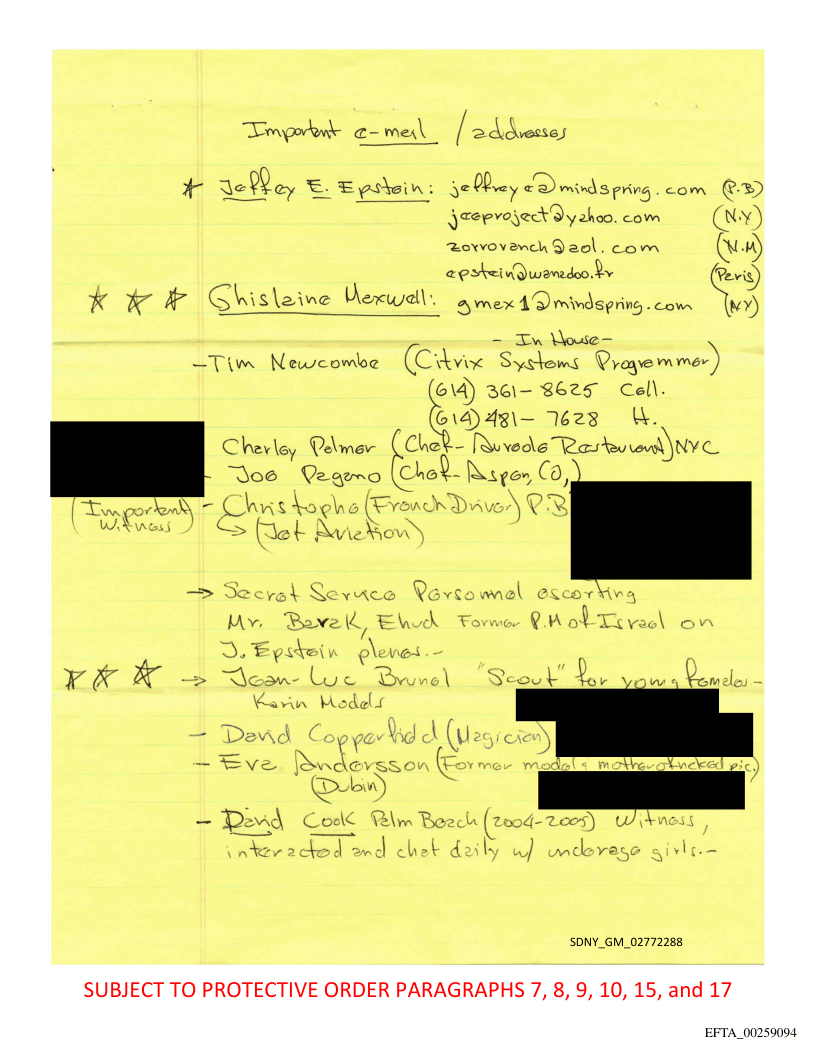 Important e-mail / addresses
* Jeffey E. Epstein: jeffreye@mindspring.com (P.B)
jeeproject@yahoo.com (N.Y)
zorroranch@aol.com (N.M)
epstein@wanadoo.fr (Paris)
Ghislaine Maxwell: gmax1@mindspring.com (NY)
- In House -
- Tim Newcombe (Citrix Systems Programmer)
(614) 361-8625 Cell.
(614) 481-7628 H.
Charley Palmer (Chef- Aureole Restaurant) NYC
- Joe Pagano (Chef- Aspen, CO,)
(Important Witness) - Christophe (French Driver) P.B
(Jet Aviation)
→ Secret Service Personnel escorting
Mr. Barak, Ehud Former P.M of Israel on
J. Epstein planes.-
→ Jean-Luc Brunel "Scout" for young females-
Karin Models
- David Copperfield (Magician)
- Eva Andersson (Former model & mother of naked pic.)
(Dubin)
- David Cook Palm Beach (2004-2005) Witness,
interacted and chat daily w/ underage girls.-
SDNY_GM_02772288
SUBJECT TO PROTECTIVE ORDER PARAGRAPHS 7, 8, 9, 10, 15, and 17
EFTA_00259094